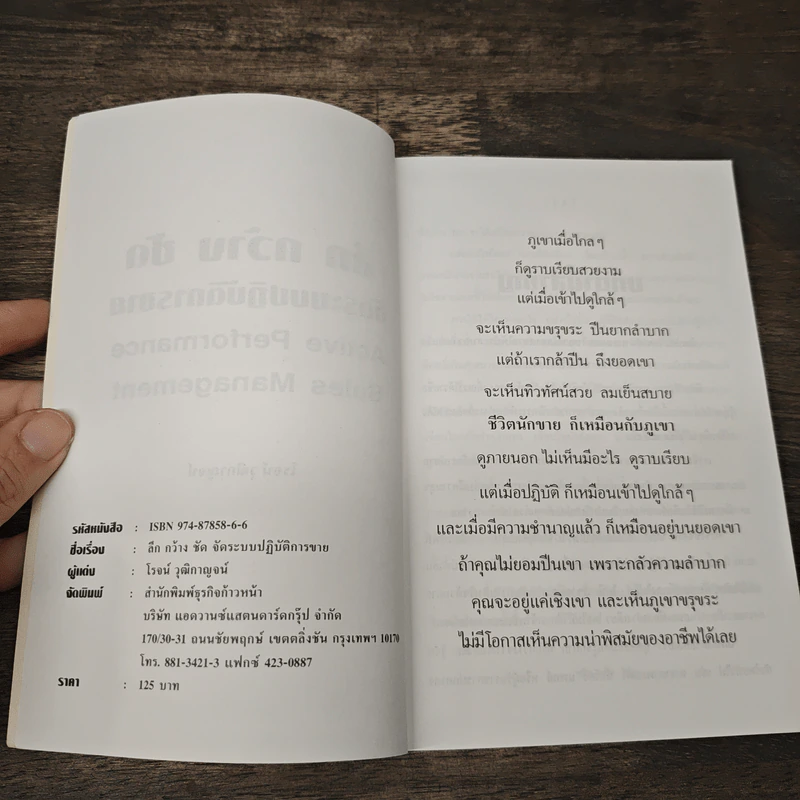 รหัสหนังสือ : ISBN 974-87858-6-6
ชื่อเรื่อง : ลึก กว้าง ชัด จัดระบบปฏิบัติการขาย
ผู้แต่ง : โรจน์ วุฒิกาญจน์
จัดพิมพ์ : สำนักพิมพ์ธุรกิจก้าวหน้า
บริษัท แอดวานซ์แสตนดาร์ดกรุ๊ป จำกัด
170/30-31 ถนนชัยพฤกษ์ เขตตลิ่งชัน กรุงเทพฯ 10170
โทร. 881-3421-3 แฟกซ์ 423-0887
ราคา : 125 บาท
ภูเขาเมื่อไกล ๆ
ก็ดูราบเรียบสวยงาม
แต่เมื่อเข้าไปดูใกล้ ๆ
จะเห็นความขรุขระ ปีนยากลำบาก
แต่ถ้าเรากล้าปีน ถึงยอดเขา
จะเห็นทิวทัศน์สวย ลมเย็นสบาย
ชีวิตนักขาย ก็เหมือนกับภูเขา
ดูภายนอก ไม่เห็นมีอะไร ดูราบเรียบ
แต่เมื่อปฏิบัติ ก็เหมือนเข้าไปดูใกล้ ๆ
และเมื่อมีความชำนาญแล้ว ก็เหมือนอยู่บนยอดเขา
ถ้าคุณไม่ยอมปีนเขา เพราะกลัวความลำบาก
คุณจะอยู่แค่เชิงเขา และเห็นภูเขาขรุขระ
ไม่มีโอกาสเห็นความน่าพิสมัยของอาชีพได้เลย